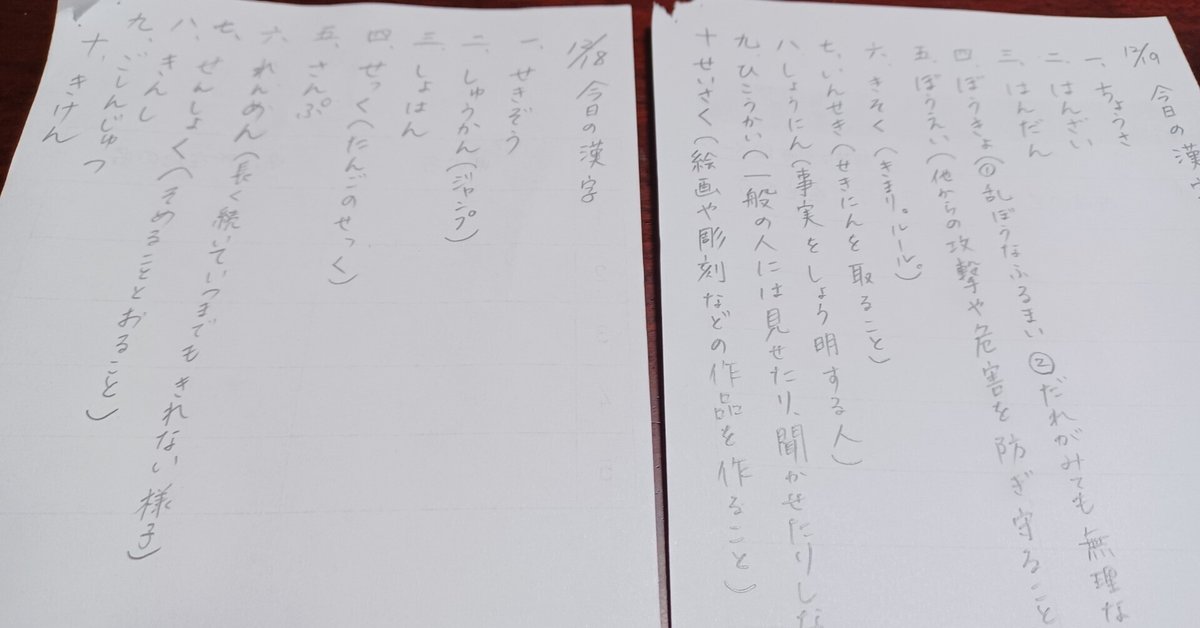 12/19 今日の漢字
一、ちょうさ
二、はんざい
三、はんだん
四、ぼうきょ(①乱ぼうなふるまい ②だれがみても無理な
五、ぼうえい(他からの攻撃や危害を防ぎ守ること
六、きそく(きまり。ルール。)
七、いんせき(せきにんを取ること)
八、しょうにん(事実をしょう明する人)
九、ひこうかい(一般の人には見せたり、聞かせたりしな
十 せいさく(絵画や彫刻などの作品を作ること)
12/18 今日の漢字
一、せきぞう
二、しゅうかん(ジャンプ)
三、しょはん
四、せっく(たんごのせっく)
五、さんぷ
六、れんめん(長く続いていつまでもきれない様子)
七、せんしょく(そめることとおること)
八、きんし
九、ごしんじゅつ
十、きけん